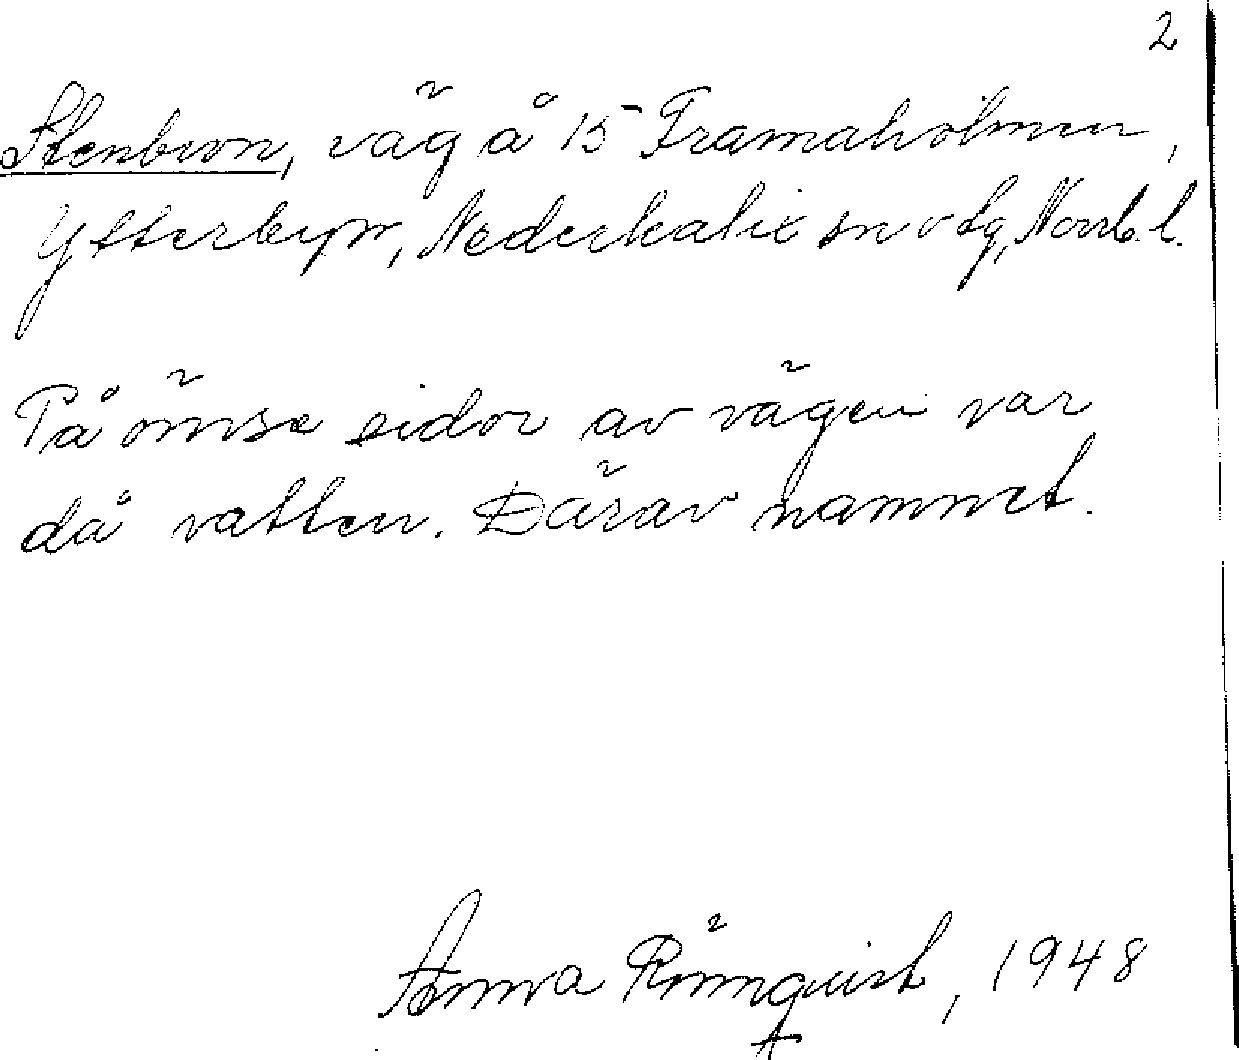 2
Stenbron, väg å 15 Framaholmen,
Ytterbyn, Nederkalix sn o tg, Norrb. l.
På ömse sidor av vägen var
då vatten. Därav namnet.
Anna Rönnquist, 1948